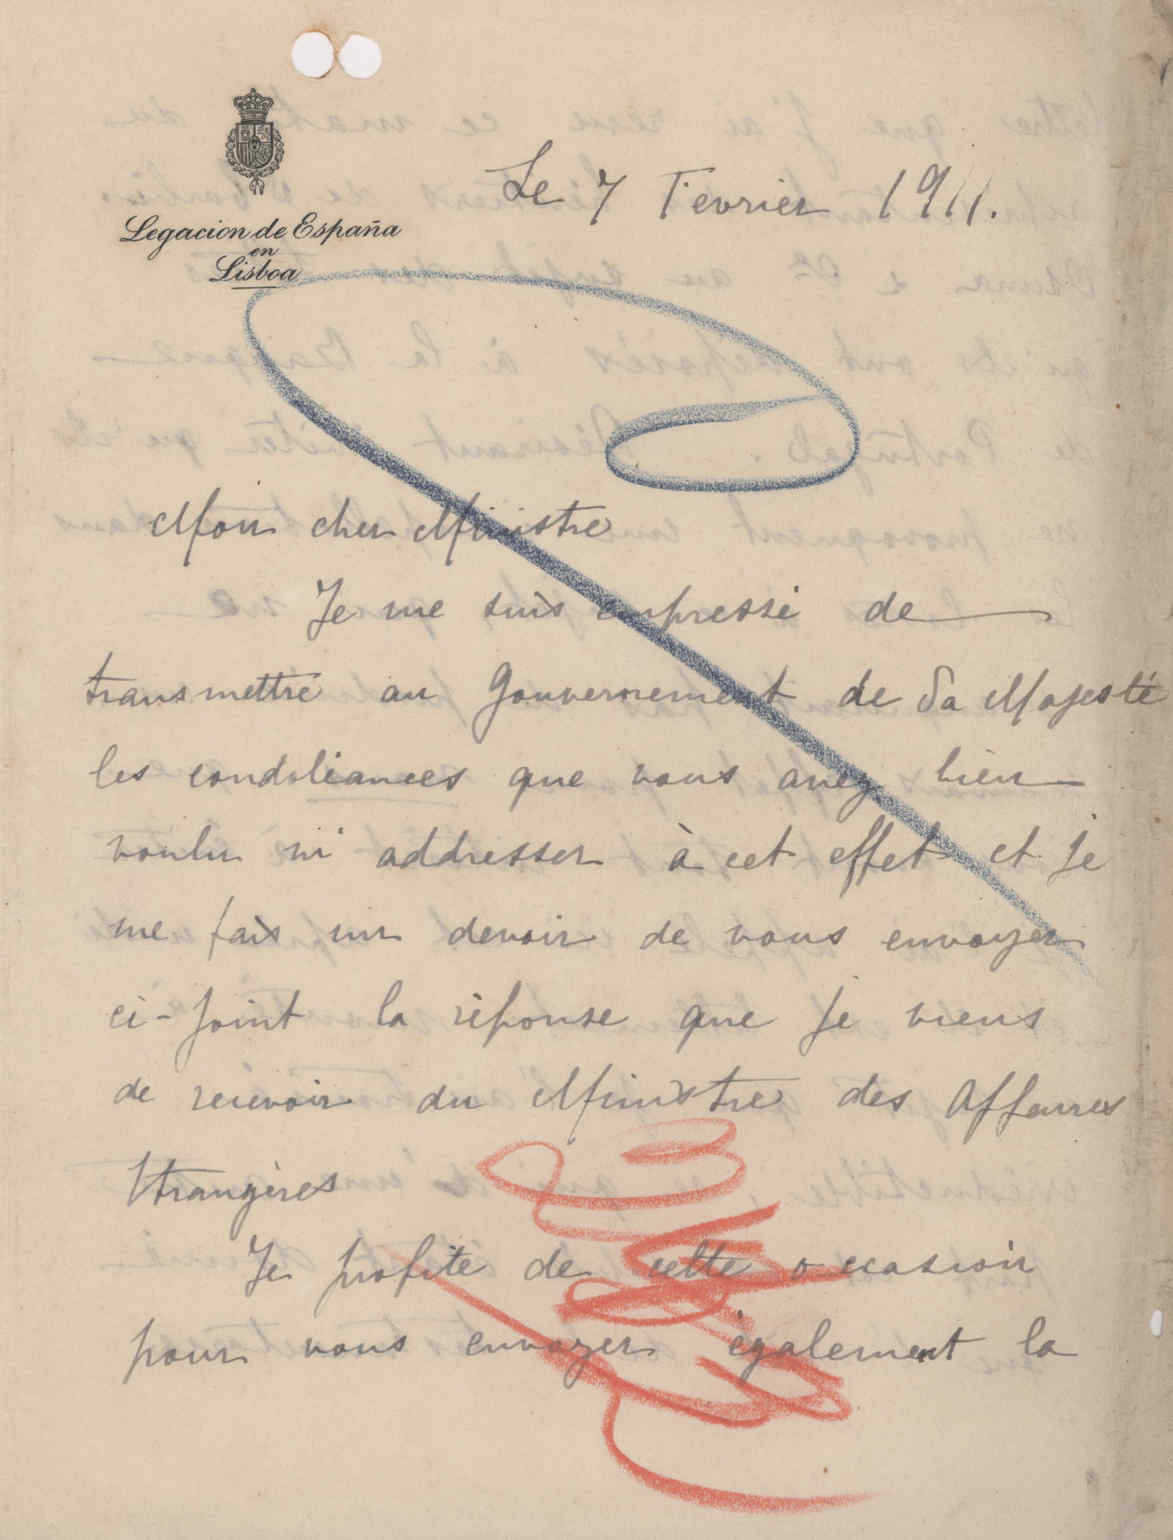 Legacion de España
en
Lisboa
Le 7 Fevrier 1911.
Mon cher Ministre
Je me suis empressé de
transmettre au Gouvernement de Sa Majesté
les condoléances que vous avez bien
voulu m'addresser à cet effet et je
me fais un devoir de vous envoyer
ci-joint la réponse que je viens
de recevoir du Ministre des Affaires
Etrangères
Je profite de cette occasion
pour vous envoyer également la